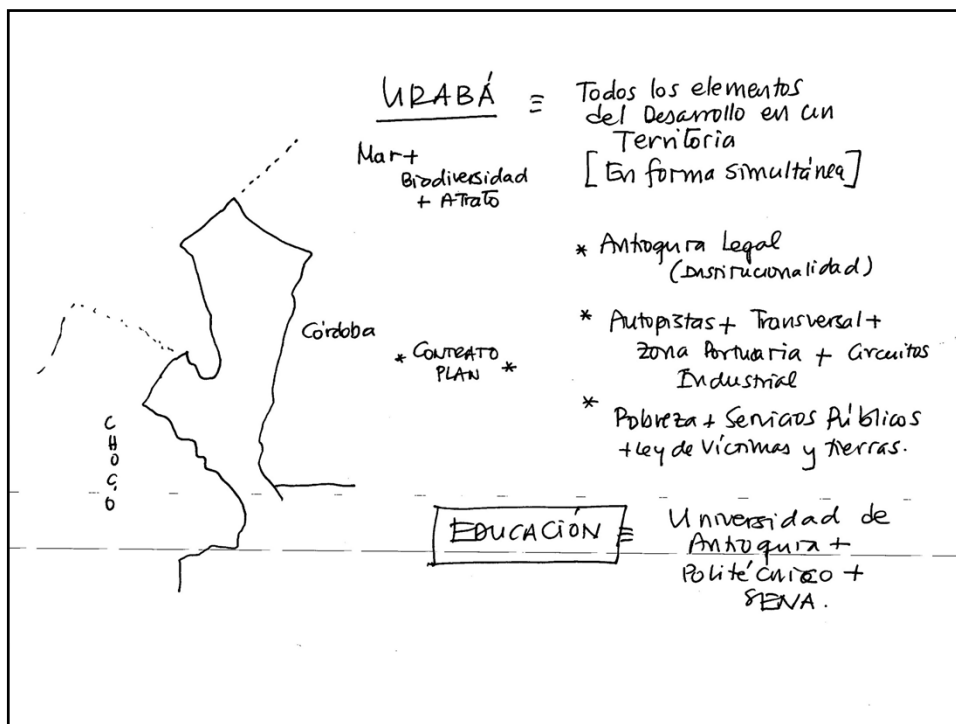 URABÁ ≡ Todos los elementos
del Desarrollo en un
Territoria
[En forma simultánea]
Mar +
Biodiversidad
+ Atrato
* Antioquia Legal
(Institucionalidad)
Córdoba
* CONTRATO
PLAN *
* Autopistas + Transversal +
Zona Portuaria + Circuitos
Industrial
* Pobreza + Servicios Públicos
+ Ley de Víctimas y tierras.
CHOCÓ
EDUCACIÓN ≡ Universidad de
Antioquia +
Politécnico +
SENA.